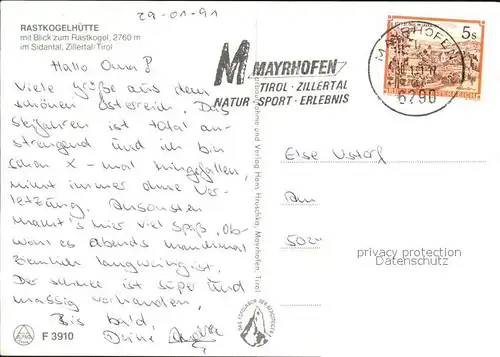 29-01-91
RASTKOGELHÜTTE
mit Blick zum Rastkogel, 2760 m
im Sidantal, Zillertal/Tirol
Hallo Oma!
Viele Grüße aus dem
schönen Österreich. Das
Skifahren ist total an-
strengend und ich bin
schon x-mal hingefallen,
nicht immer ohne Ver-
letzung. Ansonsten
macht's hier viel Spaß, Ob-
wohl es abends manchmal
ziemlich langweilig ist.
Der Schnee ist super und
massig vorhanden.
Bis bald,
Deine
F 3910
M MAYRHOFEN
TIROL · ZILLERTAL
NATUR · SPORT · ERLEBNIS
MAYRHOFEN
6290
5s
und Verlag Hans Hruschka, Mayrhofen, Tirol
Else
Am
502
privacy protection
Datenschutz